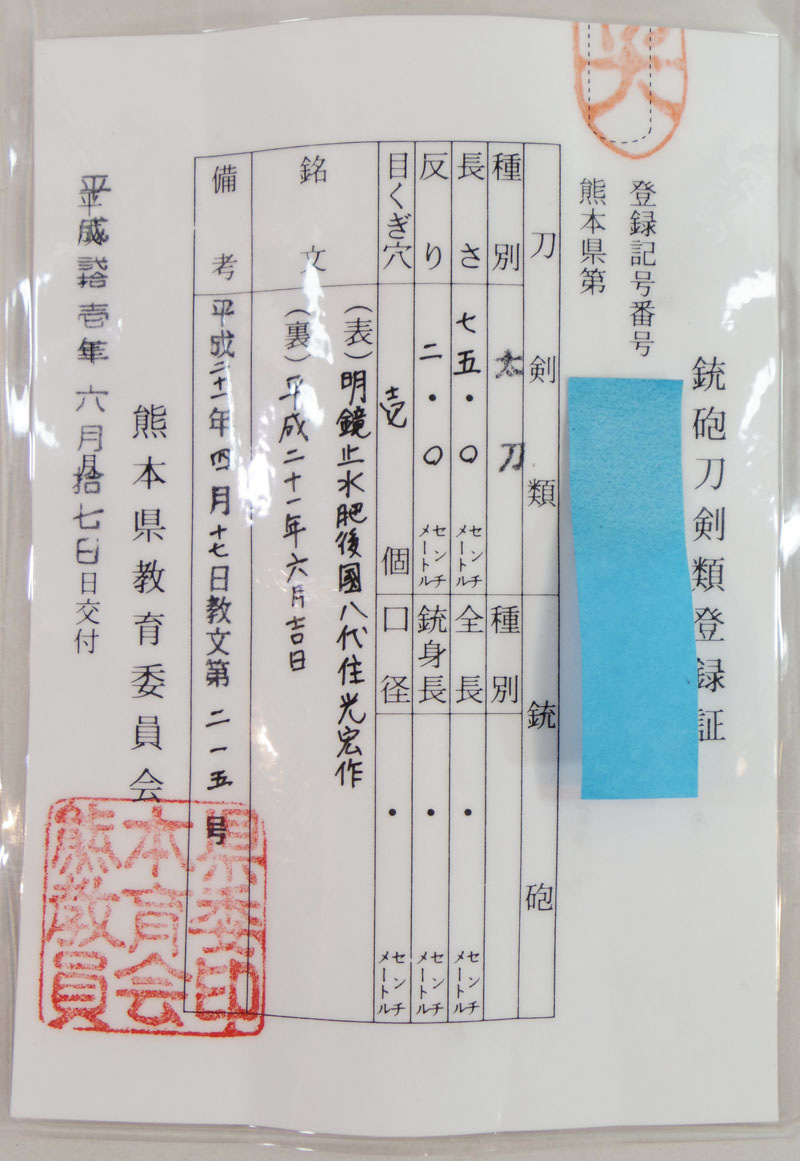 銃砲刀剣類登録証
登録記号番号
熊本県第
刀剣類
銃砲
種別 太刀
種別
長さ 七五・〇 センチメートル
全長 ・ センチメートル
反り 二・〇 センチメートル
銃身長 ・ センチメートル
目くぎ穴 壱 個
口径 ・ センチメートル
銘文
(表)明鏡止水肥後國八代住光宏作
(裏)平成二十一年六月吉日
備考
平成二十一年四月十七日教文第二一五号
熊本県教育委員会
平成弐拾壱年六月拾七日交付
熊本県
教育委
員会印